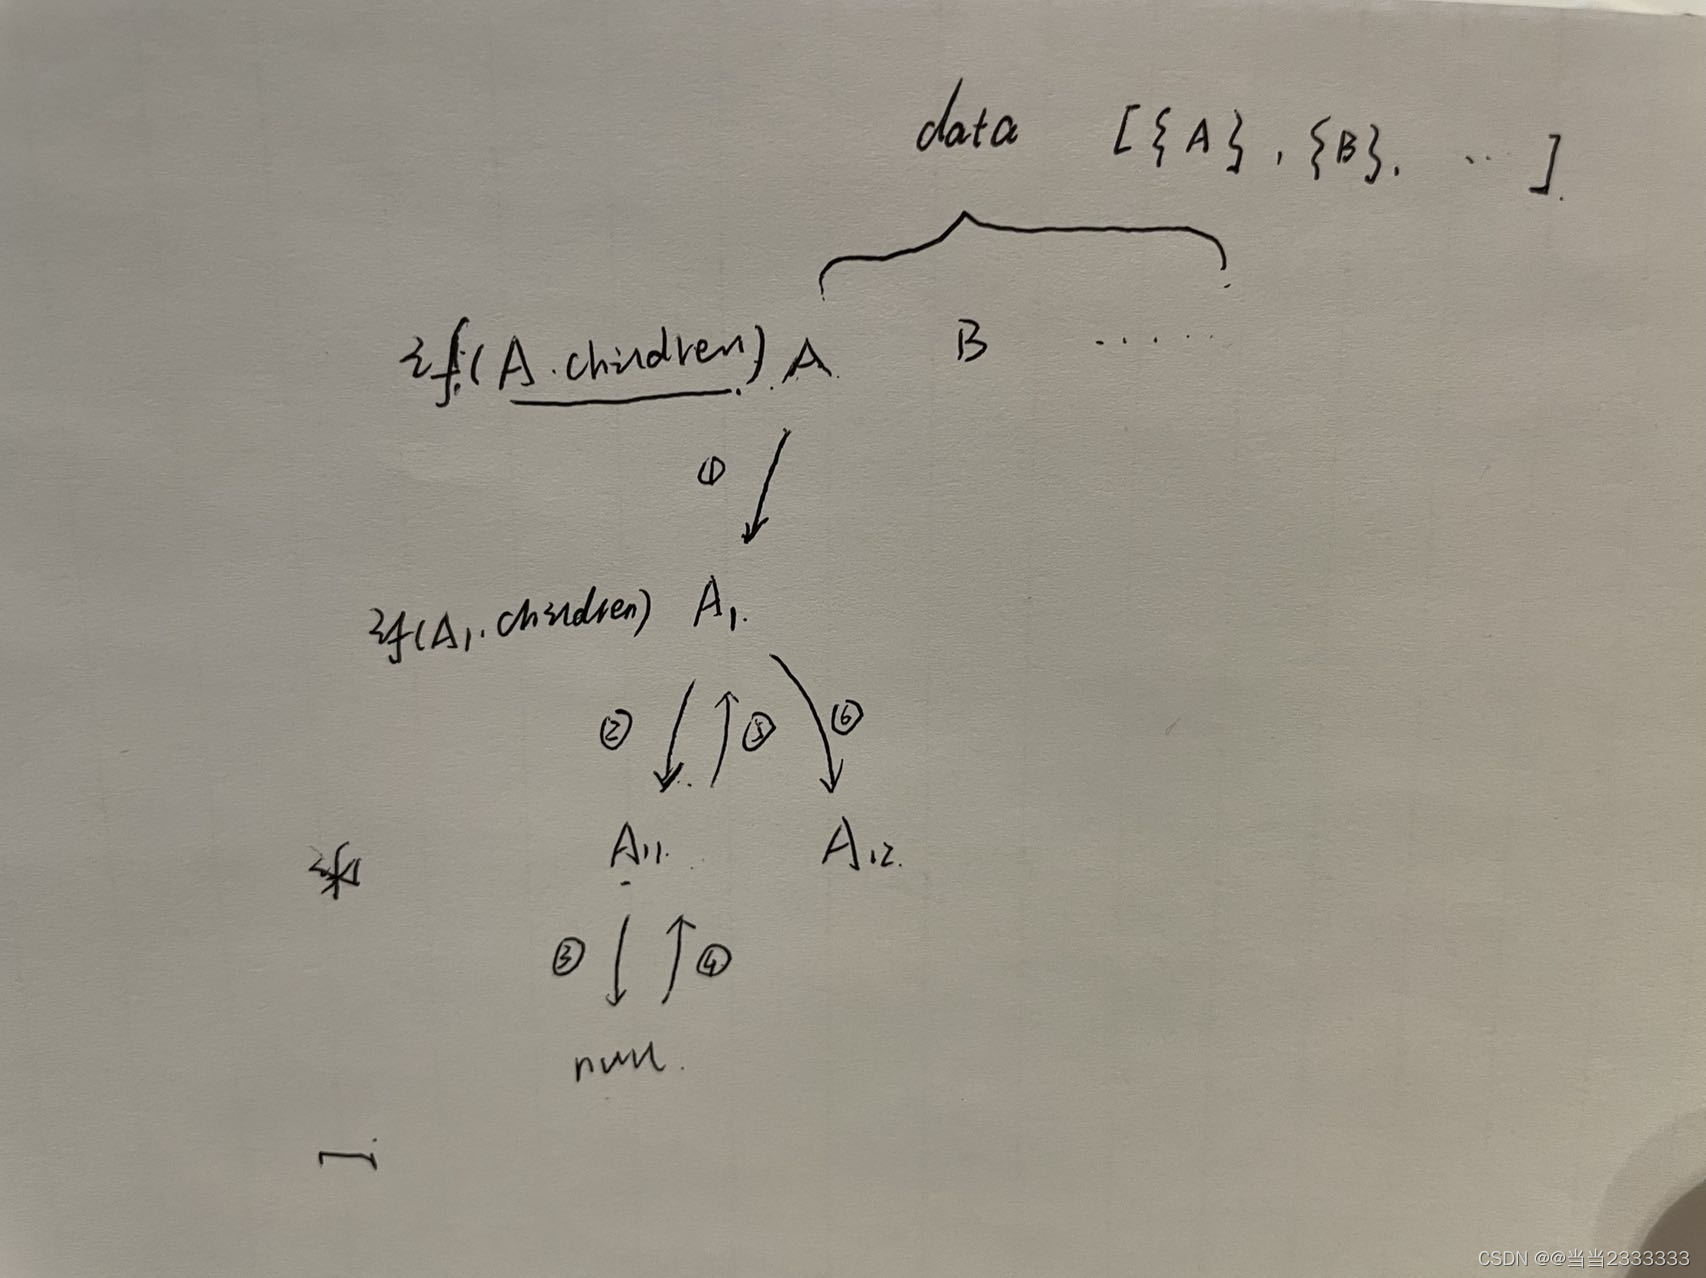 data [{A}, {B}, ... ]
if(A.children) A B ......
①
if(A1.children) A1.
② ⑤ ⑥
A11. A12.
③ ④
null.
CSDN @@当当2333333